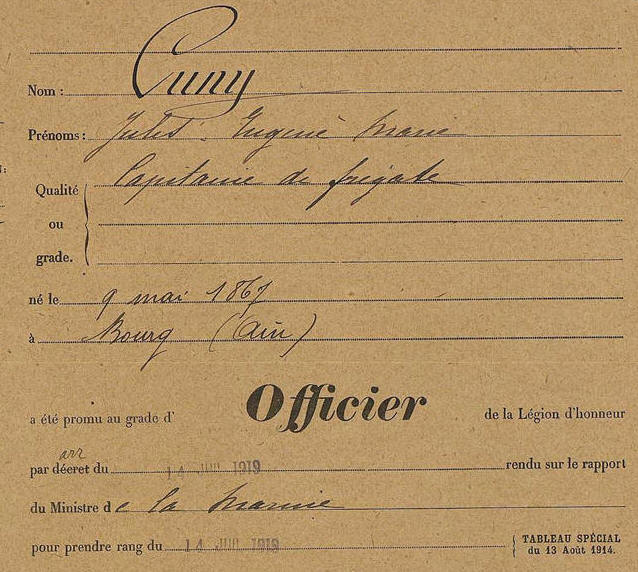 Nom : Cuny
Prénoms : Jules Eugène Marie
Qualité ou grade. Capitaine de frégate
né le 9 mai 1867
à Bourg (Ain)
a été promu au grade d' Officier de la Légion d'honneur
arr
par décret du 14 1919 rendu sur le rapport
du Ministre de la Marine
pour prendre rang du 14 1919
TABLEAU SPÉCIAL
du 13 Août 1914.